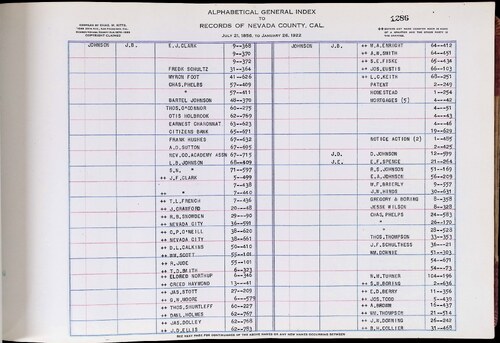 ALPHABETICAL GENERAL INDEX
TO
RECORDS OF NEVADA COUNTY, CAL.
JULY 21, 1856, TO JANUARY 26, 1922
COPYRIGHT CLAIMED
1286
JOHNSON J.B. E.J.CLARK 9--368 JOHNSON J.B. ++ W.A.ENRIGHT 64--412
9--370 ++ A.B.SMITH 64--451
9--372 ++ S.E.FISKE 65--434
FREDK SCHULTZ 31--364 ++ JOS.EUSTIS 66--103
MYRON FOOT 41--626 ++ L.G.KEITH 68--251
CHAS.PHELBS 57--409 PATENT 2--249
" 57--411 HOMESTEAD 1--254
BARTEL JOHNSON 48--370 MORTGAGES [5] 4--42
THOS.O'CONNOR 60--275 4--51
OTIS HOLBROOK 62--769 4--43
EARNEST CHAHONNAT 63--623 4--48
CITIZENS BANK 65--671 19--629
FRANK HUSKED 67--632 NOTICE ACTION [2] 1--485
A.O.SUTTON 67--695 2--425
NEV.CO.ACADEMY ASSN 67--715 J.D. D.JOHNSON 12--599
L.B.JOHNSON 68--409 J.E. E.F.SPENCE 21--264
S.B. " 71--597 R.S.JOHNSON 51--169
++ J.F.CLARK 5--499 E.A.JOHNSON 56--209
7--438 W.F.BRIERLY 9--557
++ " 7--440 J.W.HINDS 30--631
++ T.L.FRENCH 7--436 GREGORY & BORING 8--358
++ J.CRAWFORD 20--48 JESSE WILSON 8--328
++ R.B.SNOWDEN 29--90 CHAS.PHELPS 24--583
++ NEVADA CITY 36--591 " 26--170
++ O.P.O'NEILL 38--620 " 28--528
++ NEVADA CITY 38--661 THOS.THOMPSON 33--353
++ D.L.CALKINS 50--410 J.F.SCHULTHESS 36--21
++ WM.SCOTT 55--101 WM.DONNIE 51--303
++ R.JUDE 55--101 54--671
++ T.D.SMITH 6--323 54--73
++ ELDRED NORTHUP 6--346 N.H.TURNER 104--196
++ CREED HAYMOND 13--41 ++ S.H.BORING 2--636
++ JAS.STOTT 27--209 ++ E.D.BERRY 11--356
++ G.H.MOORE 6--579 ++ JOS.TODD 5--439
++ THOS.SHURTLEFF 60--227 ++ A.BROWN 16--437
++ DANL.HOLMES 62--767 ++ WM.THOMPSON 21--514
++ JAS.DOLLEY 62--768 ++ J.H.DORNING 26--242
++ J.D.ELLIS 62--783 ++ B.H.COLLIER 31--468